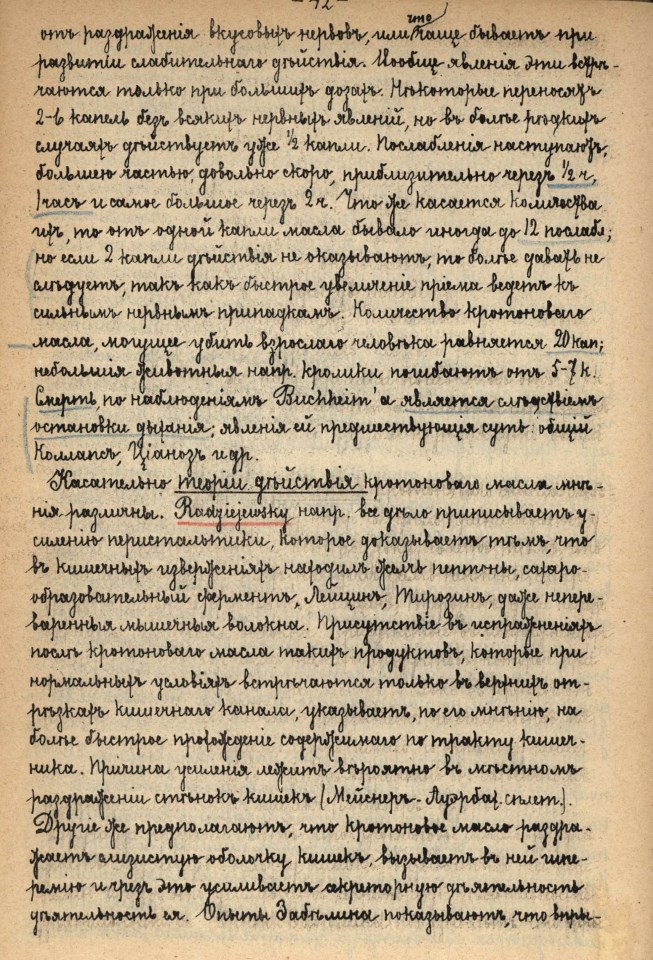 - 42 -
отъ раздраженія вкусовыхъ нервовъ, или что чаще бываетъ при
развитіи слабительнаго дѣйствія. Вообще явленія эти встрѣ-
чаются только при большихъ дозахъ. Нѣкоторые переносятъ
2-6 капель безъ всякихъ нервныхъ явленій, но въ болѣе рѣдкихъ
случаяхъ дѣйствуетъ уже ½ капли. Послабленія наступаютъ,
большею частью, довольно скоро, приблизительно черезъ ½ ч,
1 часъ и самое большое черезъ 2 ч. Что же касается количества
ихъ, то отъ одной капли масла бывало иногда до 12 послабл;
но если 2 капли дѣйствія не оказываютъ, то болѣе давать не
слѣдуетъ, такъ какъ быстрое увеличеніе пріема ведетъ къ
сильнымъ нервнымъ припадкамъ. Количество кротоноваго
масла, могущее убить взрослаго человѣка равняется 20 кап;
небольшія животныя напр. кролики погибаютъ отъ 5-7 к.
Смерть, по наблюденіямъ Buchheim'а является слѣдствіемъ
остановки дыханія; явленія ей предшествующія суть: общій
Коллапсъ, Ціанозъ и др.
Касательно теоріи дѣйствія кротоноваго масла мнѣ-
нія различны. Radziejewsky напр. все дѣло приписываетъ у-
силенію перистальтики, которое доказываетъ тѣмъ, что
въ кишечныхъ изверженіяхъ находилъ желчь пептоны, сахаро-
образовательный ферментъ, Лейцинъ, Тирозинъ, даже непере-
варенныя мышечныя волокна. Присутствіе въ испражненіяхъ
послѣ кротоноваго масла такихъ продуктовъ, которые при
нормальныхъ условіяхъ встрѣчаются только въ верхнихъ от-
рѣзкахъ кишечнаго канала, указываетъ, по его мнѣнію, на
болѣе быстрое прохожденіе содержимаго по тракту кишеч-
ника. Причина усиленія лежитъ вѣроятно въ мѣстномъ
раздраженіи стѣнокъ кишекъ (Мейснеръ-Ауэрбах. сплет.).
Другіе же предполагаютъ, что кротоновое масло раздра-
жаетъ слизистую оболочку кишекъ, вызываетъ въ ней гипе-
ремію и чрезъ это усиливаетъ секреторную дѣятельность
дѣятельность ея. Опыты Забѣлина показываютъ, что впры-